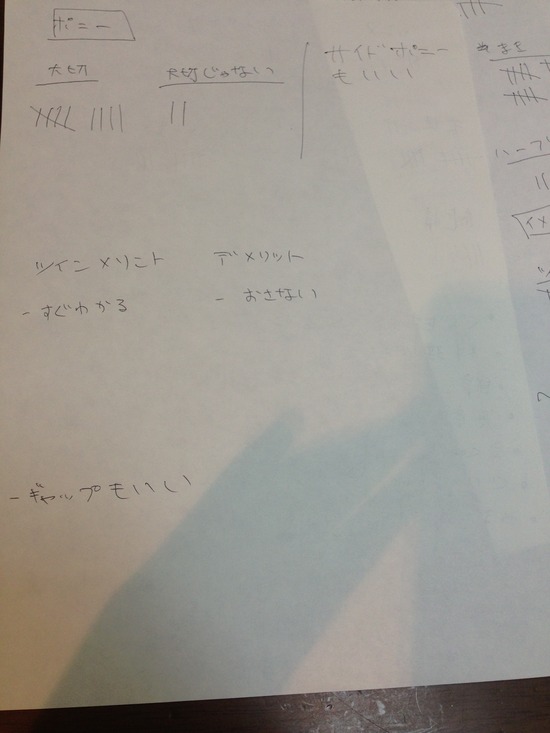 ポニー
大切
大切じゃない
サイドポニー
もいいい
ツインメリット
デメリット
- すぐわかる
- おさない
- ギャップもいいい
ハーフ
イメ